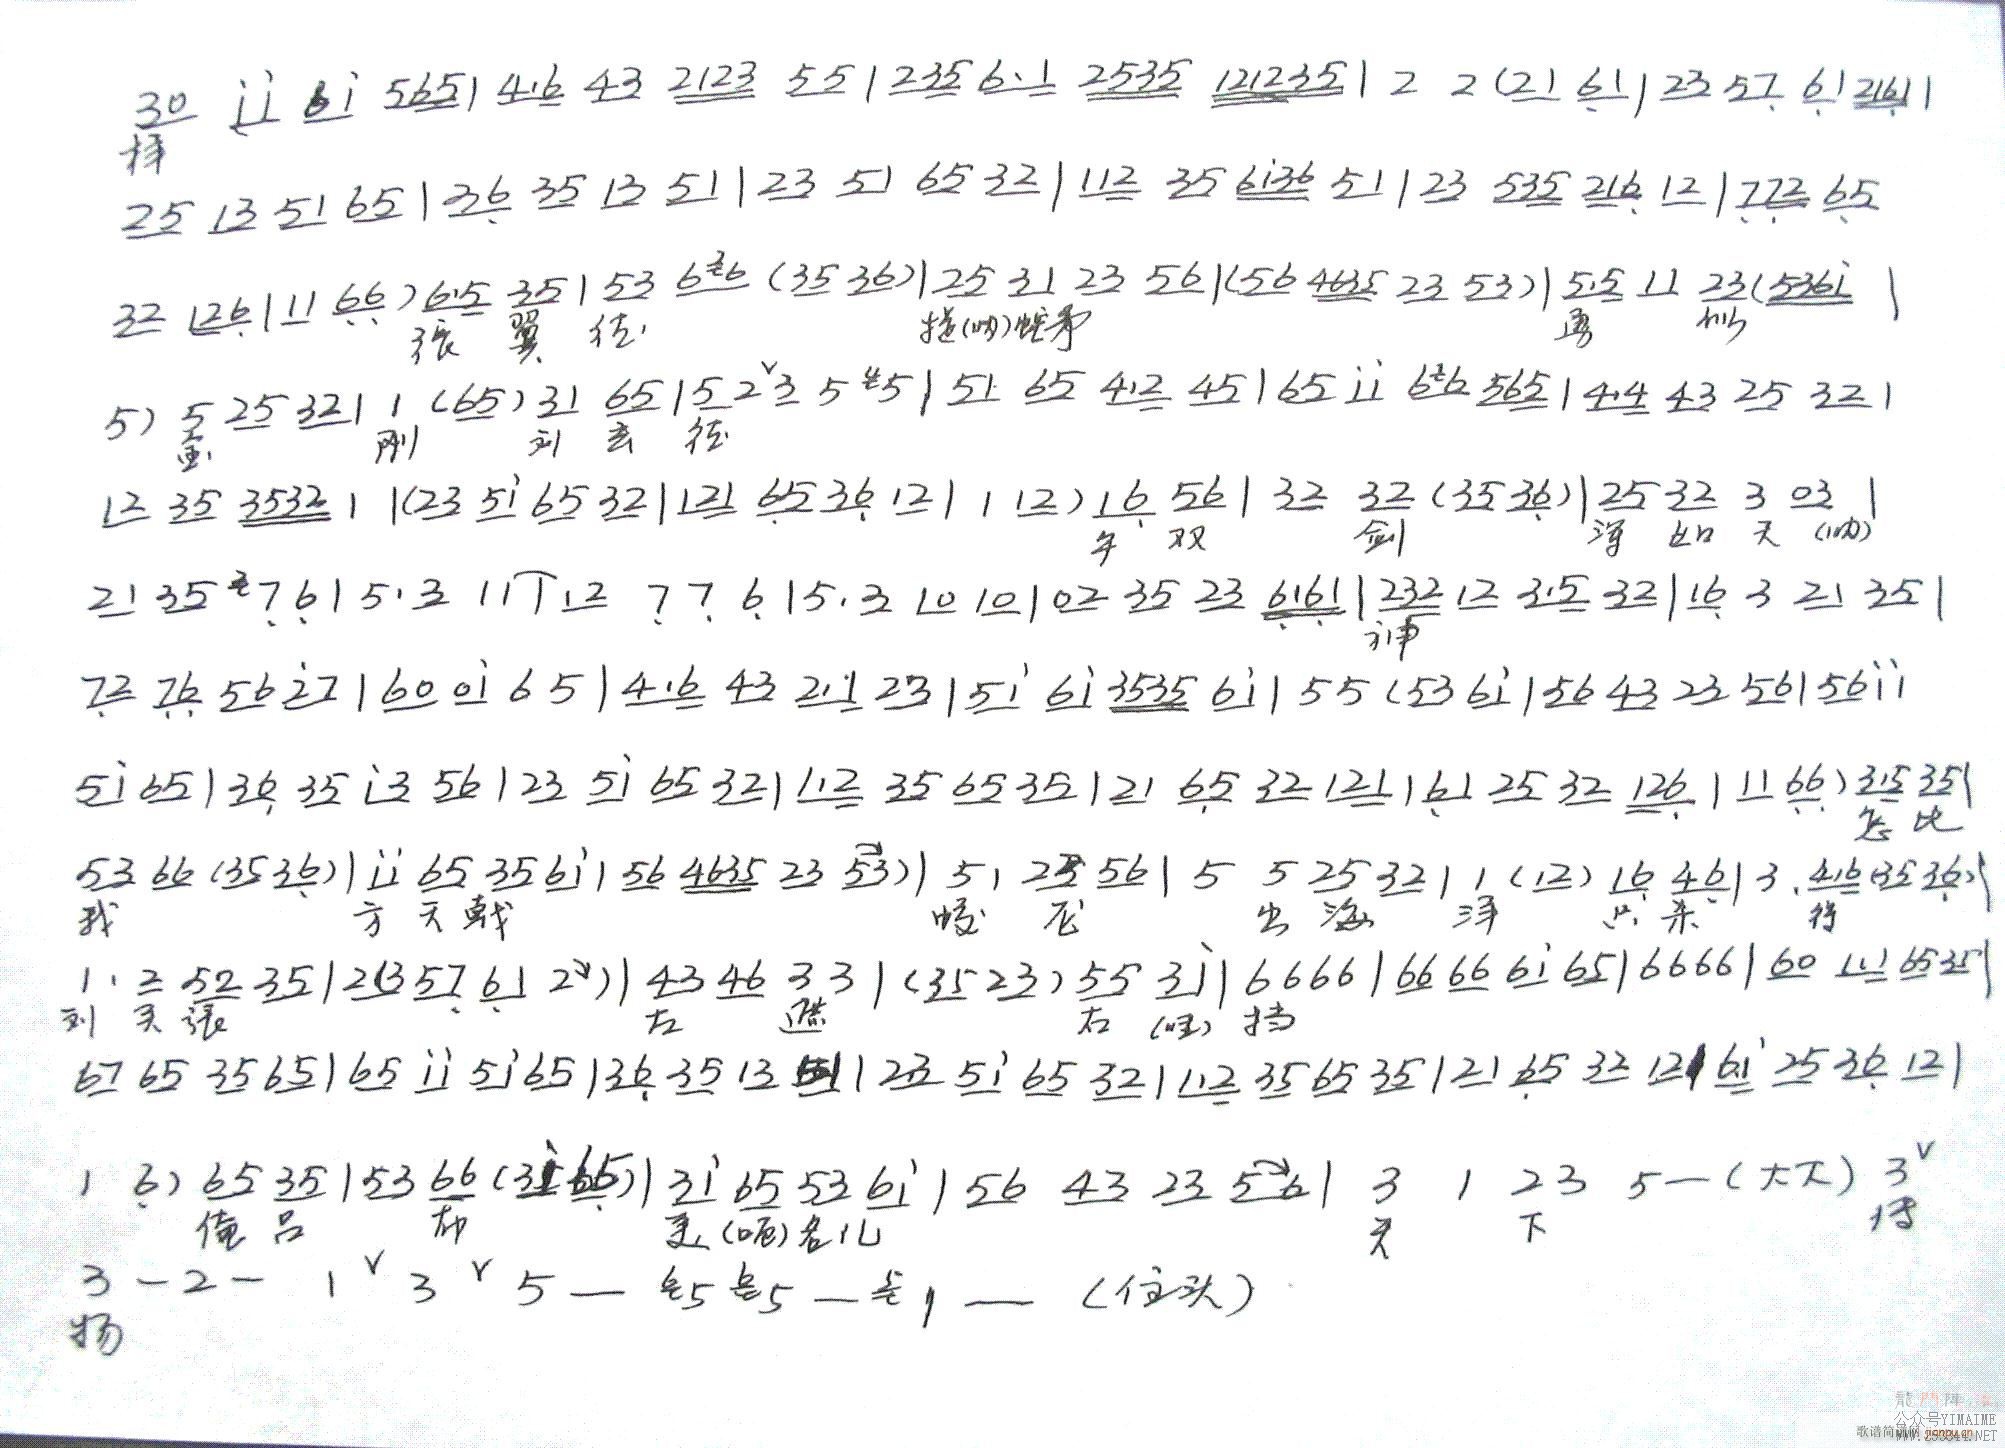 30 i̇i̇ 6i̇ 565 | 4·6 43 2123 55 | 235 6·1 2535 121235 | 2 2 (21 6̣1 | 23 57̣ 6̣1 216̣1 |
择
25 13 51 65 | 36̣ 35 13 51 | 23 51 65 32 | 112 35 6i̇36 51 | 23 535 216̣ 12 | 7̣7̣2 6̣5
32 126̣ | 11 6̣6̣) 6·5 35 | 53 6 6 (35 36) | 25 31 23 56 | (56 4635 23 53) | 5·5 11 23 (536i̇ |
张 翼 德 (呐) 蛇矛 勇
5) 5 25 32 | 1 (65) 31 65 | 5 2ˇ3 5 5 | 51 65 4·2 45 | 65 i̇i̇ 6 6 565 | 4·4 43 25 32 |
刚 刘 玄 德
12 35 3532 1 | (23 5i̇ 65 32 | 121 6̣5 36̣ 12 | 1 12) 16̣ 56 | 32 32 (35 36̣) | 25 32 3 03 |
双 剑 浑 如 天 (呐)
21 35 7̣ 6̣ | 5·3 11 12 7̣ 7̣ 6̣ | 5·3 10 10 | 02 35 23 6̣16̣1 | 232 12 3·5 32 | 16̣ 3 21 35 |
神
7̣2 7̣6̣ 56 2̇7 | 60 0i̇ 65 | 4·6 43 2·1 23 | 5i̇ 6i̇ 3535 6i̇ | 55 (53 6i̇ | 56 43 23 56 | 56 i̇i̇
5i̇ 65 | 36̣ 35 i̇3 56 | 23 5i̇ 65 32 | 1·2 35 65 35 | 21 6̣5 32 121 | 6̣1 25 32 126̣ | 11 6̣6̣) 3·5 35 |
怎 比
53 66 (35 36̣) | i̇i̇ 65 35 6i̇ | 56 4635 23 53) | 51 23 56 | 5 5 25 32 | 1 (12) 16̣ 46̣ | 3· 4·6 (35 36̣) |
我 方 天 戟 蛟 龙 出 海 洋 只 杀 得
1·2 52 35 | 2 (3 57̣ 6̣1 2) | 43 46 33 | (35 23) 55 3i̇ | 6666 | 66 66 6i̇ 65 | 6666 | 60 111 6535 |
刘 关 张 左 遮 右 (哇) 挡
67 65 35 65 | 65 i̇i̇ 5i̇ 65 | 36̣ 35 13 51 | 23 5i̇ 65 32 | 1·2 35 65 35 | 21 6̣5 32 121 6i̇ 25 36̣ 12 |
1 6̣) 65 35 | 53 66 (3 65) | 3i̇ 65 53 6i̇ | 56 43 23 56 | 3 1 23 5— (大大) 3ˇ
俺 吕 布 美 (呃) 名 儿 天 下 传
3 — 2 — 1ˇ 3ˇ 5 — 5 5 — 1 — (住头)
扬
公众号YIMAIME
歌谱简谱网 jianpu.cn